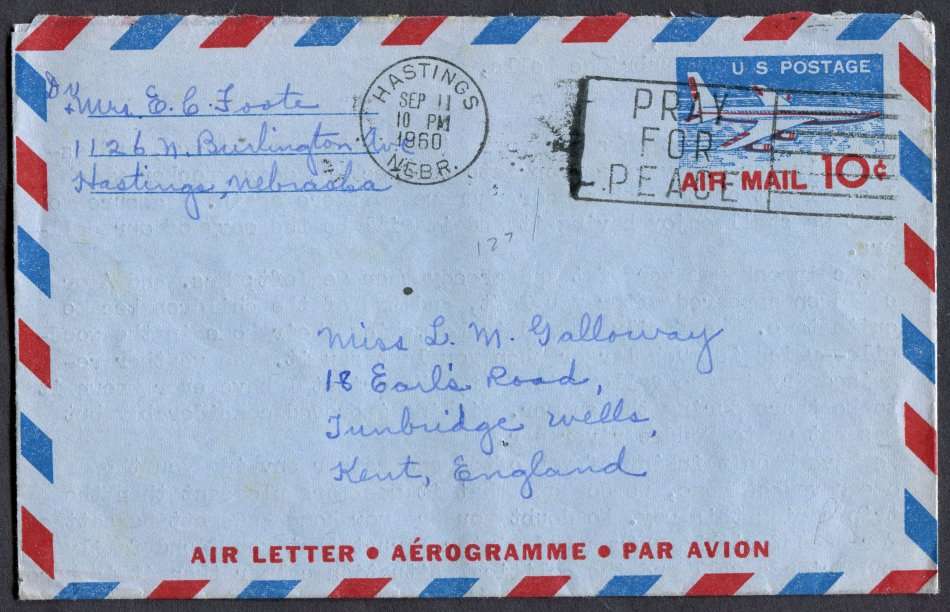 Dr + Mrs. E. C. Foote
1126 N. Burlington Ave
Hastings, Nebraska
HASTINGS
SEP 11
10 PM
1960
NEBR.
PRAY
FOR
PEACE
U S POSTAGE
AIR MAIL 10¢
127
Miss L. M. Galloway
18 Earl's Road,
Tunbridge Wells,
Kent, England
AIR LETTER • AÉROGRAMME • PAR AVION